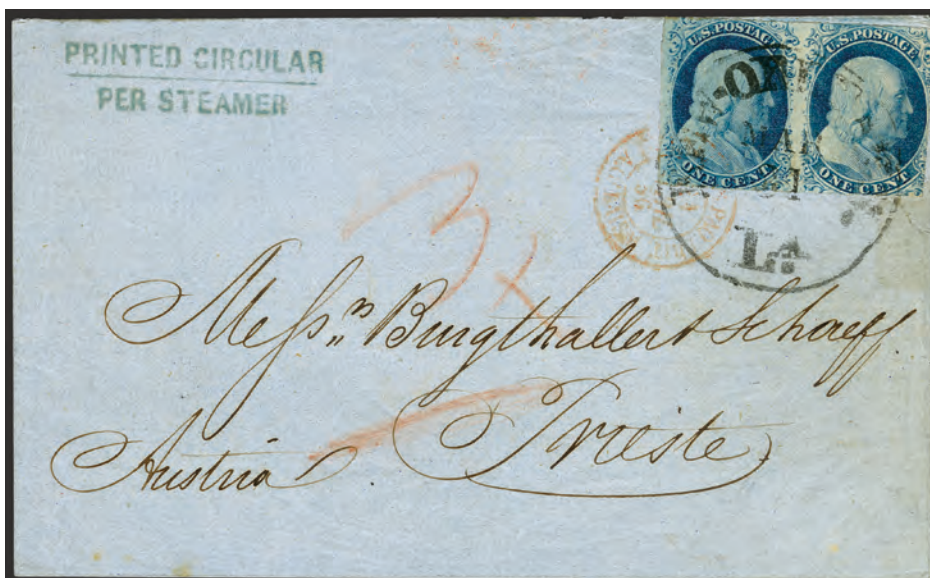 PRINTED CIRCULAR
PER STEAMER
U.S. POSTAGE
ONE CENT
U.S. POSTAGE
ONE CENT
La
3
Messrs Burgthallert Schaeff.
Trieste
Austria